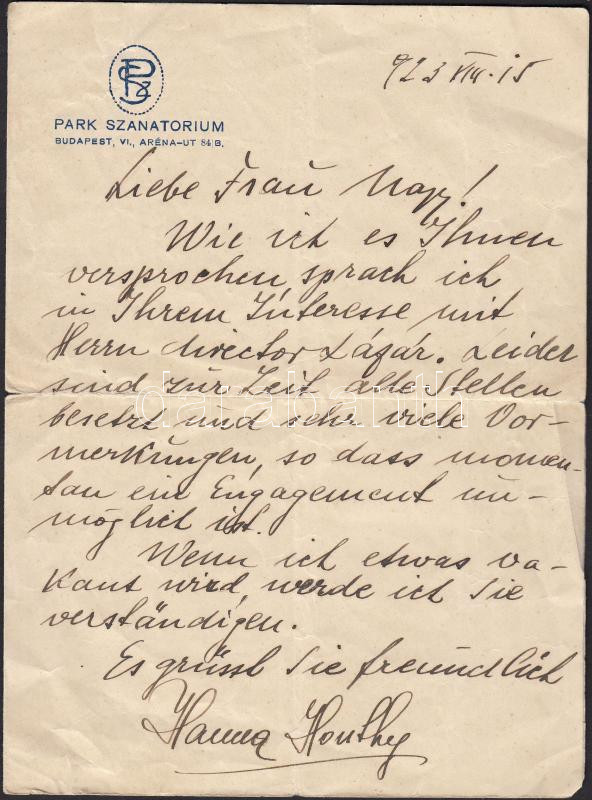 PSZ
923 VIII.15
PARK SZANATORIUM
BUDAPEST, VI., ARÉNA-UT 84|B.
Liebe Frau Nagy!
Wie ich es Ihnen
versprochen, sprach ich
in Ihrem Interesse mit
Herrn director Lázár. Leider
sind zur Zeit alle Stellen
besetzt und sehr viele Vor-
merkungen, so dass momen-
tan ein Engagement un-
möglich ist.
Wenn ich etwas va-
kant wird, werde ich Sie
verständigen.
Es grüsst Sie freundlich
Hanna Honthy
darabanth